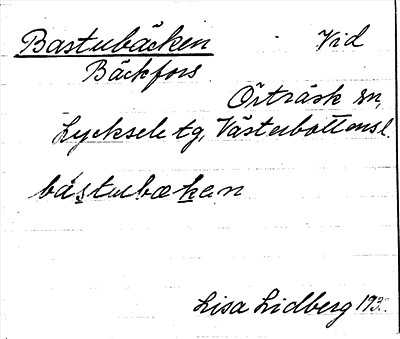 Bastubäcken Vid
Bäckfors
Örträsk sn,
Lycksele tg, Västerbottensl.
bástubækæn
Lisa Lidberg 193